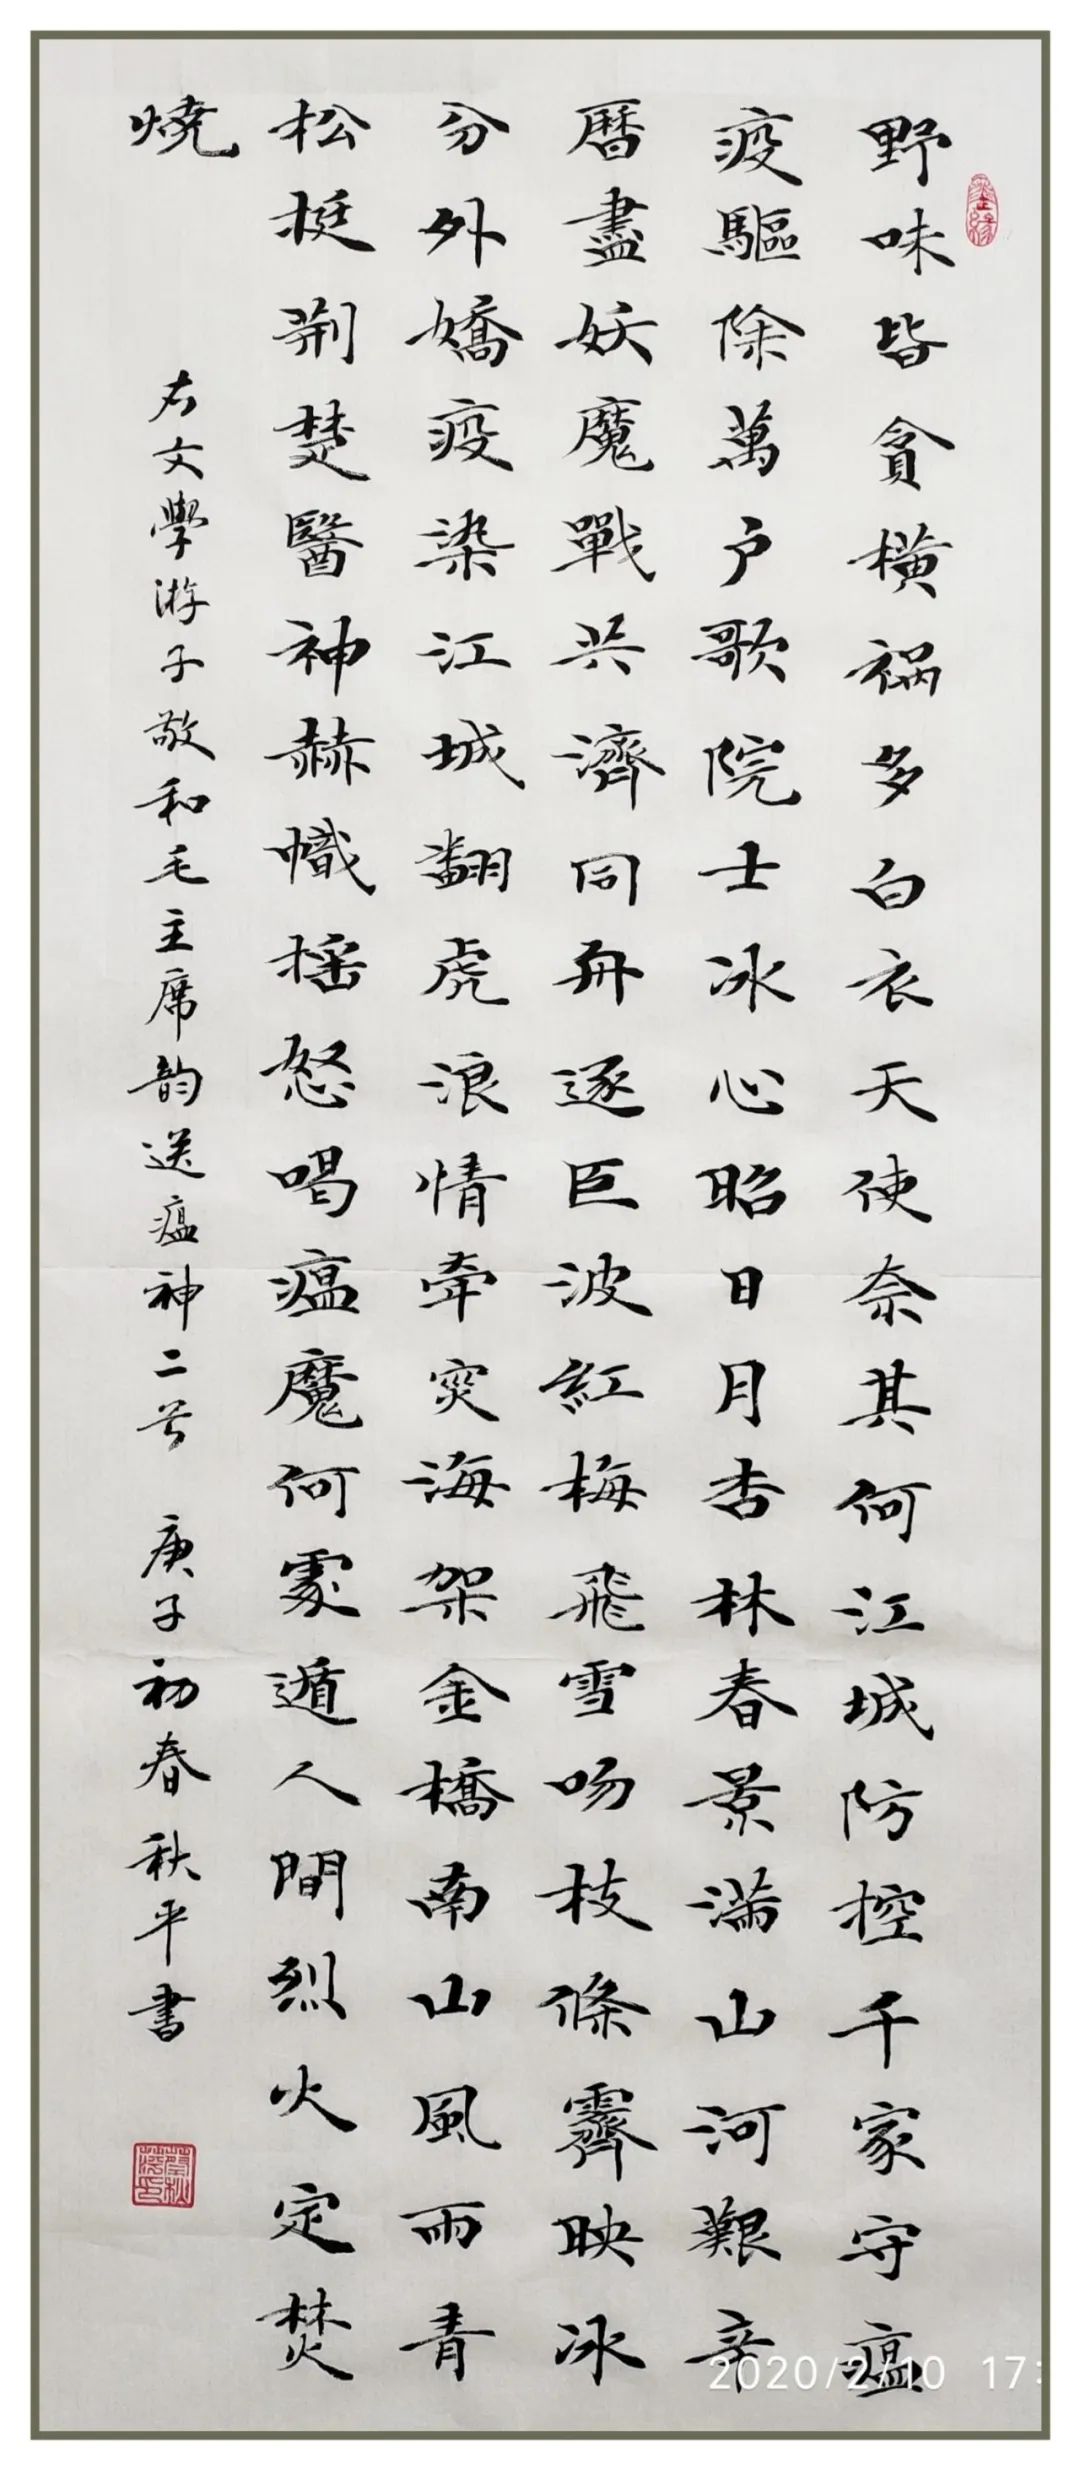 野味皆貪橫祸多白衣天使奈其何江城防控千家守瘟
疫驅除萬户歌院士冰心昭日月杏林春景满山河艱辛
曆盡妖魔戰共濟同舟逐巨波紅梅飛雪吻枝條霽映冰
分外嬌疫染江城翻虎浪情牽災海架金橋南山風雨青
松挺荆楚醫神赫幟摇怒喝瘟魔何處遁人間烈火定焚
燒
右文學游子敬和毛主席韵送瘟神二首 庚子初春秋平書
2020/2/10 17: